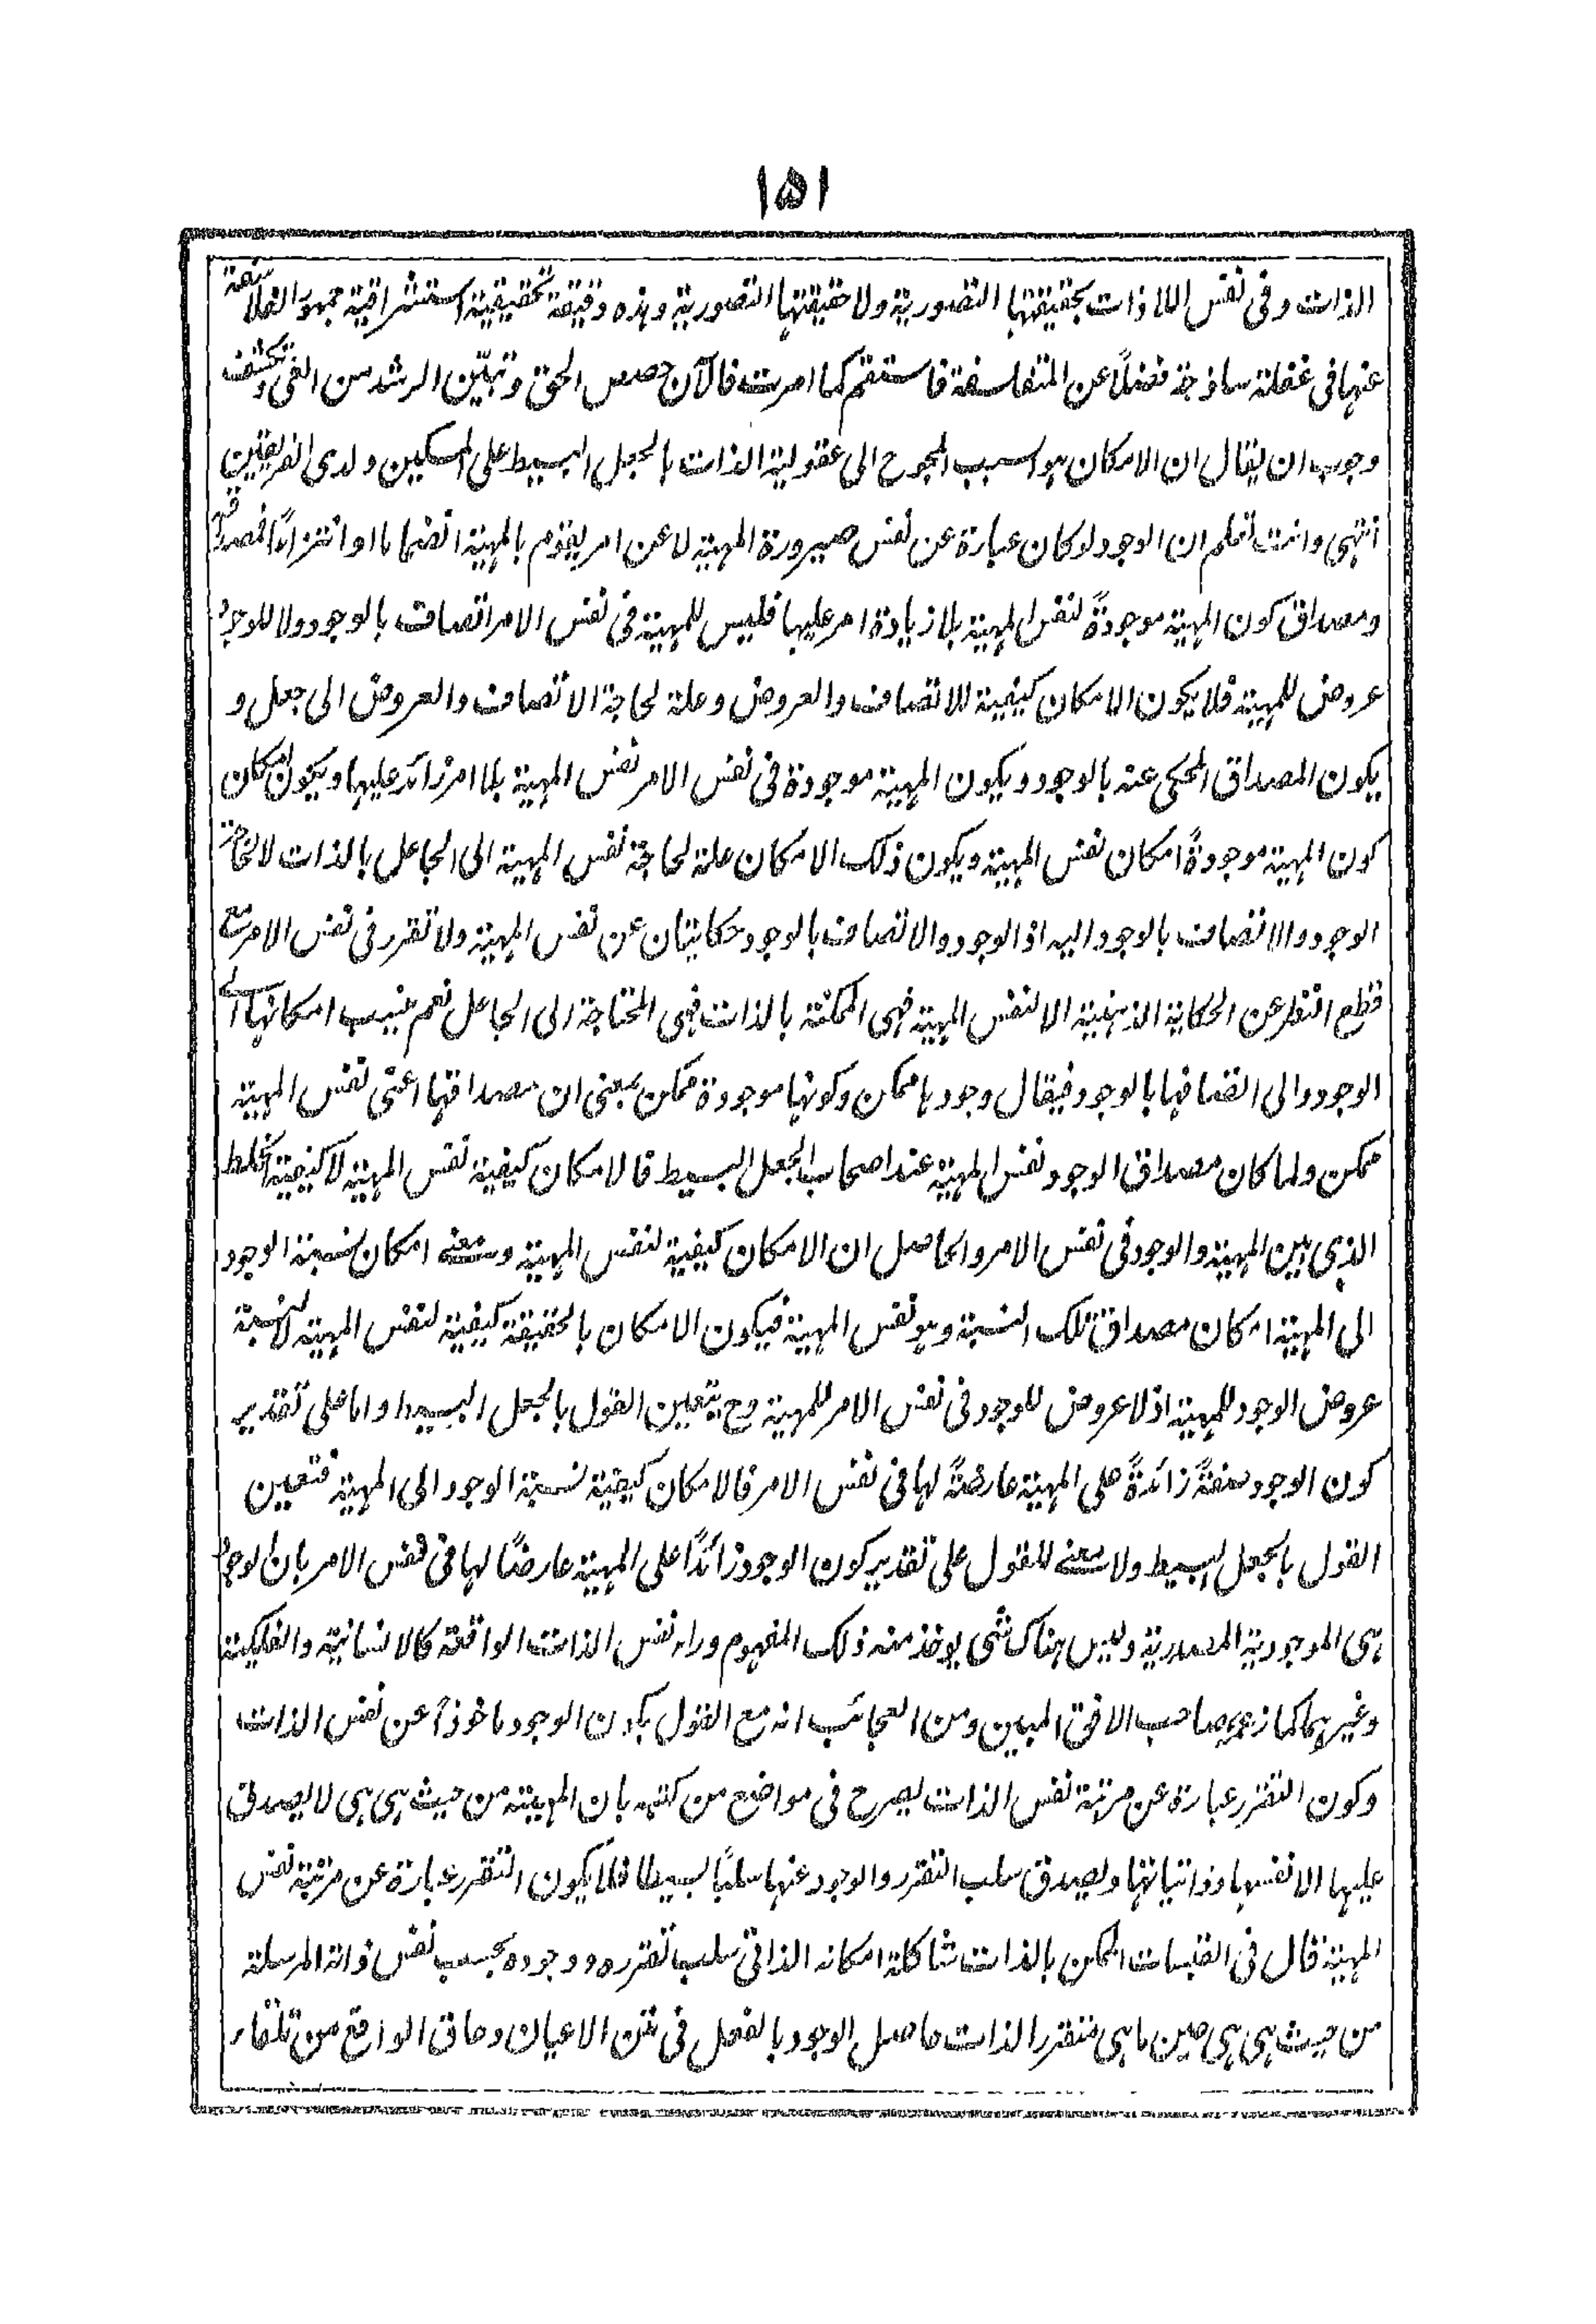 ١۵١
الذات وفى نفس اللا ذات بحقيقتها التصورية ولا حقيقتها التصورية وهذه دقيقة تحقيقية استشراقية جمهور الفلاسفة
عنها فى غفلة ساذجة فضلاً عن المتفلسفة فاستقم كما امرت فالآن حصص الحق وتبيّن الرشد من الغى وتكشف
وجوب ان يقال ان الامكان هو السبب المحوج الى عقولية الذات بالجعل البسيط على المسكين ولدى الفريقين
انتهى وانت تعلم ان الوجود لو كان عبارة عن نفس صيرورة المهية لا عن امر يقوم بالمهية انضماما او انتزاعًا فمصداقه
ومصداق كون المهية موجودةً لنفس المهية بلا زيادة امر عليها فليس للمهية فى نفس الامر اتصاف بالوجود ولا للوجود
عروض للمهية فلا يكون الامكان كيفية للاتصاف والعروض وعلة لحاجة الاتصاف والعروض الى جعل و
يكون المصداق المحكى عنه بالوجود ويكون المهية موجودة فى نفس الامر نفس المهية بلا امر زائد عليها ويكون امكان
كون المهية موجودةً امكان نفس المهية ويكون ذلك الامكان علة لحاجة نفس المهية الى الجاعل بالذات لا لحاجة
الوجود والاتصاف بالوجود اليه اذ الوجود والاتصاف بالوجود حكايتان عن نفس المهية ولا تقرر فى نفس الامر مع
قطع النظر عن الحكاية الذهنية الا لنفس المهية فهى الممكنة بالذات فهى المحتاجة الى الجاعل نعم ينسب امكانها الى
الوجود والى اتصافها بالوجود فيقال وجودها ممكن وكونها موجودة ممكن بمعنى ان مصداقها اعنى نفس المهية
ممكن ولما كان مصداق الوجود نفس المهية عند اصحاب الجعل البسيط فالامكان كيفية نفس المهية لا كيفية الخلط
الذى بين المهية والوجود فى نفس الامر والحاصل ان الامكان كيفية لنفس المهية ومعنے امكان نسبة الوجود
الى المهية امكان مصداق تلك النسبة وهو نفس المهية فيكون الامكان بالحقيقة كيفية لنفس المهية لا لنسبة
عروض الوجود للمهية اذ لا عروض للوجود فى نفس الامر للمهية وح يتعين القول بالجعل البسيط واما على تقدير
كون الوجود صفةً زائدةً على المهية عارضةً لها فى نفس الامر فالامكان كيفية نسبة الوجود الى المهية فتعين
القول بالجعل البسيط ولا معنے للقول على تقدير كون الوجود زائدًا على المهية عارضًا لها فى نفس الامر بان الوجود
هى الموجودية المصدرية وليس هناك شى يوخذ منه ذلك المفهوم وراء نفس الذات الواقعة كالانسانية والفلكية
وغيرهما كما زعمه صاحب الافق المبين ومن العجائب انه مع القول بكون الوجود ماخوذاً عن نفس الذات
وكون التقرر عبارة عن مرتبة نفس الذات يصرح فى مواضع من كتبه بان المهية من حيث هى هى لا يصدق
عليها الا نفسها وذاتياتها ويصدق سلب التقرر والوجود عنها سلبًا بسيطا فلا يكون التقرر عبارة عن مرتبة نفس
المهية قال فى القبسات الممكن بالذات شاكلة امكانه الذاتى سلب تقرره ووجوده بحسب نفس ذاته المرسلة
من حيث هى هى حين ما هى متقرر الذات حاصل الوجود بالفعل فى متن الاعيان وحاق الواقع من تلقاء